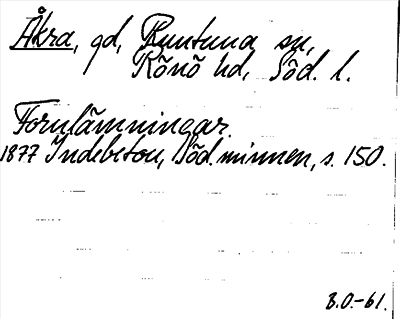 Åkra, gd, Runtuna sn,
Rönö hd, Söd. l.
Fornlämningar.
1877 Indebetou, Söd. minnen, s. 150.
B.O.-61.